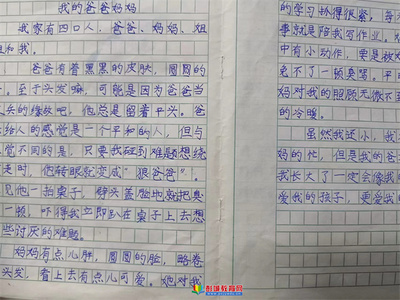 我的爸爸妈妈
我家有四口人,爸爸、妈妈、姐
姐和我。
爸爸有着黑黑的皮肤,圆圆的
。至于头发嘛,可能是因为爸爸当
兵的缘故吧,他总是留着平头。爸
给人的感觉是一个平和的人,但与
觉不同的是,只要我碰到难题想绕
走时,他转眼就变成“狼爸爸”。
见他一拍桌子,劈头盖脸地就把我
一顿,吓得我立即趴在桌子上去想
些讨厌的难题。
妈妈有点儿胖,圆圆的脸,略卷
头发,看上去有点儿可爱。她对我
的学习抓得很紧,每
事就是陪我写作业。
中有小动作,要是被
免不了一顿臭骂。平
妈对我的照顾无微不
的冷暖。
虽然我还小,我
妈的忙,但是我的爸
我长大了一定会像我
爱我的孩子,更爱我
耐维教育网